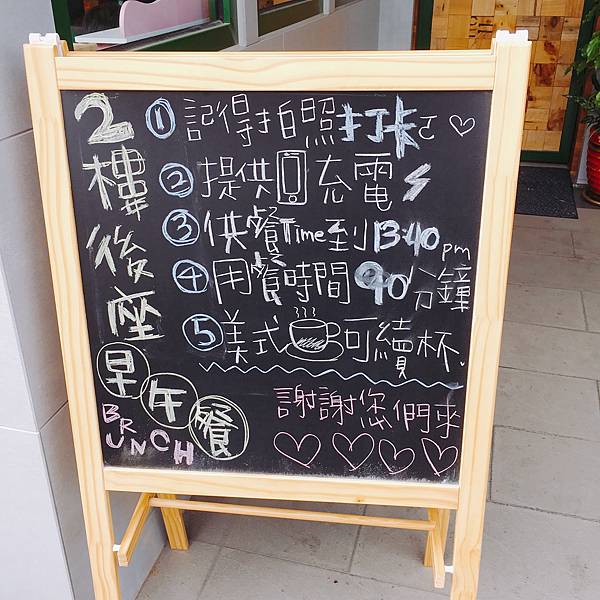 2樓後座
早午餐
BRUNCH
① 記得拍照打卡 ♡
② 提供 充電
③ 供餐Time到13:40pm
④ 用餐時間90分鐘
⑤ 美式 可續杯
謝謝您們來